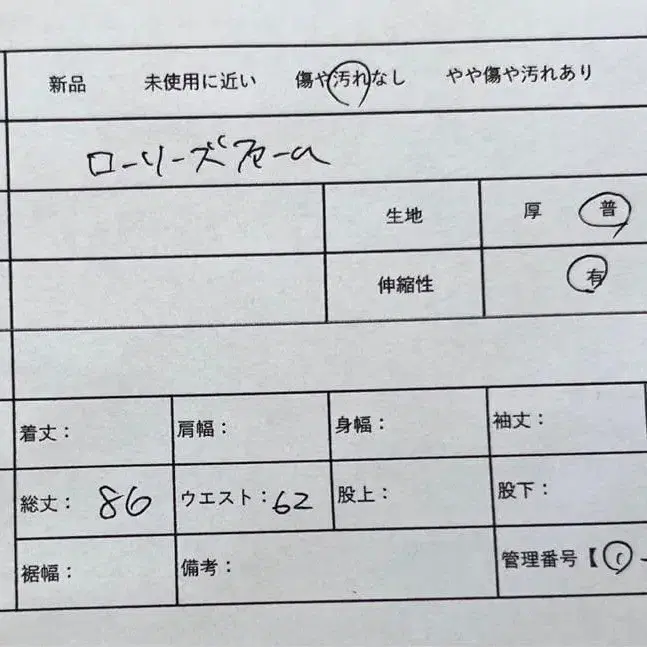 新品 未使用に近い 傷や汚れなし やや傷や汚れあり
ローリーズファーム
生地 厚 普
伸縮性 有
着丈： 肩幅： 身幅： 袖丈：
総丈：86 ウエスト：62 股上： 股下：
裾幅： 備考： 管理番号【